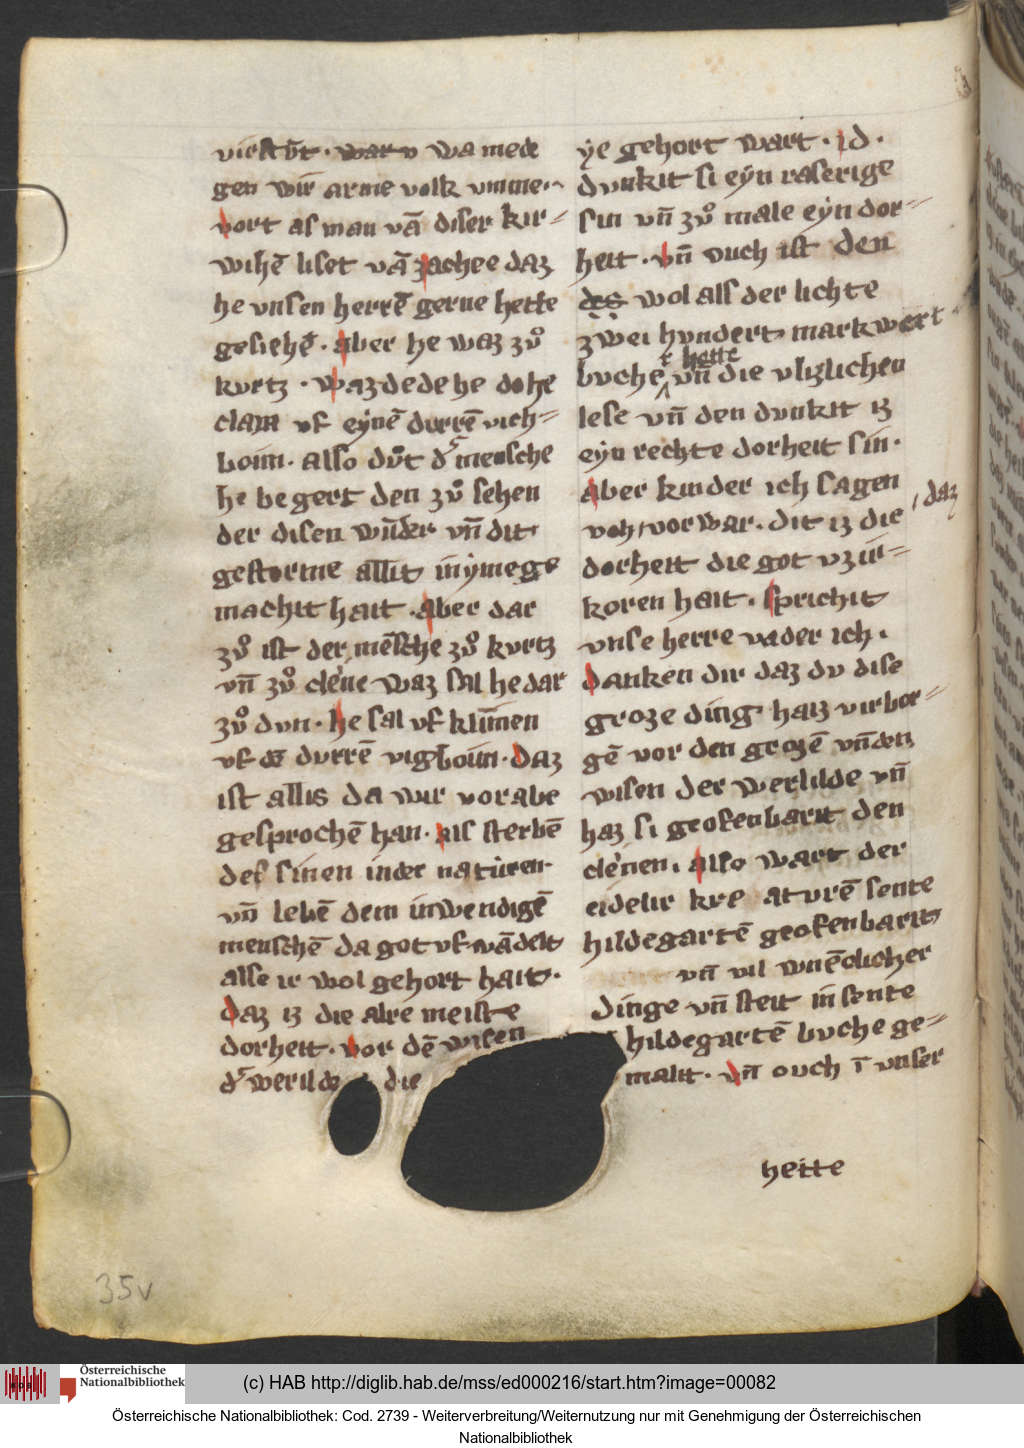 virstot. war v wa mede
gen wir arme volk vmme.
vort as man vā diser kir-
wihē liset vā zachee daz
he vnsen herrē gerne hette
gesiehē. aber he waz zuͦ
kurtz. waz dede he do he
clam vf eynē durrē vich-
boim. also duͦt d' mensche
he begert den zuͦ sehen
der disen wūder vn̄ dit
gestorme allit in yme ge
machit hait. aber dar
zuͦ ist der mēsche zuͦ kurtz
vn̄ zuͦ cleíne waz sal he dar
zuͦ dun. he sal vf klīmen
vf dē durrē vigboim. daz
ist allis da wir vor abe
gesprochē han. als sterbē
def sinen inder naturen
vn̄ lebē dem inwendigē
menschē da got vf wādelt
alse ir wol gehort hait.
daz iz die alre meiste
dorheit. vor dē wisen
d' werilde die
ye gehort wart. id.
dunkit si eyn raserige
sin vn̄ zuͦ male eyn dor-
heit. vn̄ ouch ist den
des wol alse der lichte
zwei hundert mark wert
hette
buche vn̄ die vlizlichen
lese vn̄ den dunkit iz
eyn rechte dorheit sin.
aber kinder ich sagen
voh vor war. dit iz die daz
dorheit die got vzir-
koren hait. sprichit
vnse herre vader ich.
danken dir daz du dise
groze ding haiz virbor-
gē vor den grozē vn̄ den
wisen der werlilde vn̄
haz si geofenbarit den
cleinen. also wart der
eidelir kre aturē sente
hildegartē geofenbarit
vn̄ vil wūēclicher
dinge vn̄ steit in sente
hildegartē buche ge-
malit. vn̄ ouch ī vnser
hette
35v
Österreichische
Nationalbibliothek
(c) HAB http://diglib.hab.de/mss/ed000216/start.htm?image=00082
Österreichische Nationalbibliothek: Cod. 2739 - Weiterverbreitung/Weiternutzung nur mit Genehmigung der Österreichischen
Nationalbibliothek